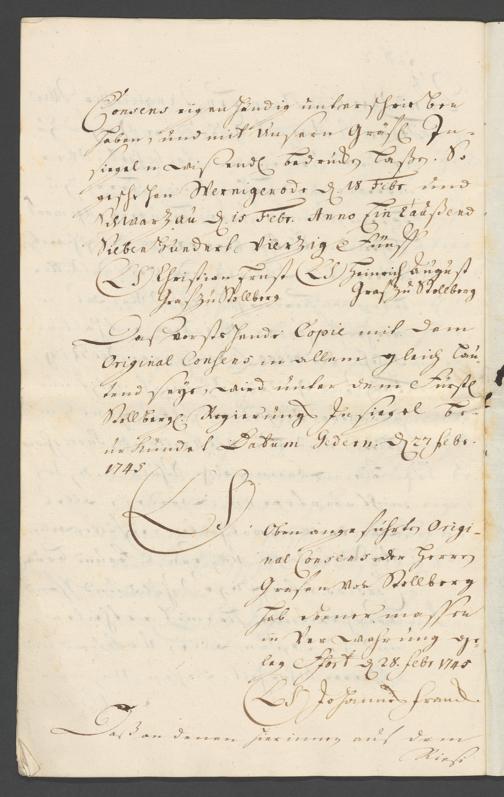 Consens eigenhändig unterschrieben
haben, und mit Unsern Gräfl. In-
siegeln wissendl. bedrucken laßen. So
geschehen Wernigerode d. 18 Febr. und
Schwartzau d. 15 Febr. Anno Ein Taußend
Sieben Hundert Vierzig Fünff
(LS) Christian Ernst (LS) Heinrich August
Graf zu Stollberg Graf zu Stollberg
Das vorstehende Copie mit dem
Original Consens in allem gleich lau-
tend seye, wird unter dem Fürstl.
Stollbergl. Regierungs Insiegel be-
urkundet Datum Gedern d. 27 Febr.
1745
(LS)
Oben angeführten Origi-
nal Consens der Herren
Grafen von Stollberg
hab ebener massen
in Verwahrung ge-
leg d. 28. Febr 1745
(LS) Johannes
Daß an denen hierinnen auf dem